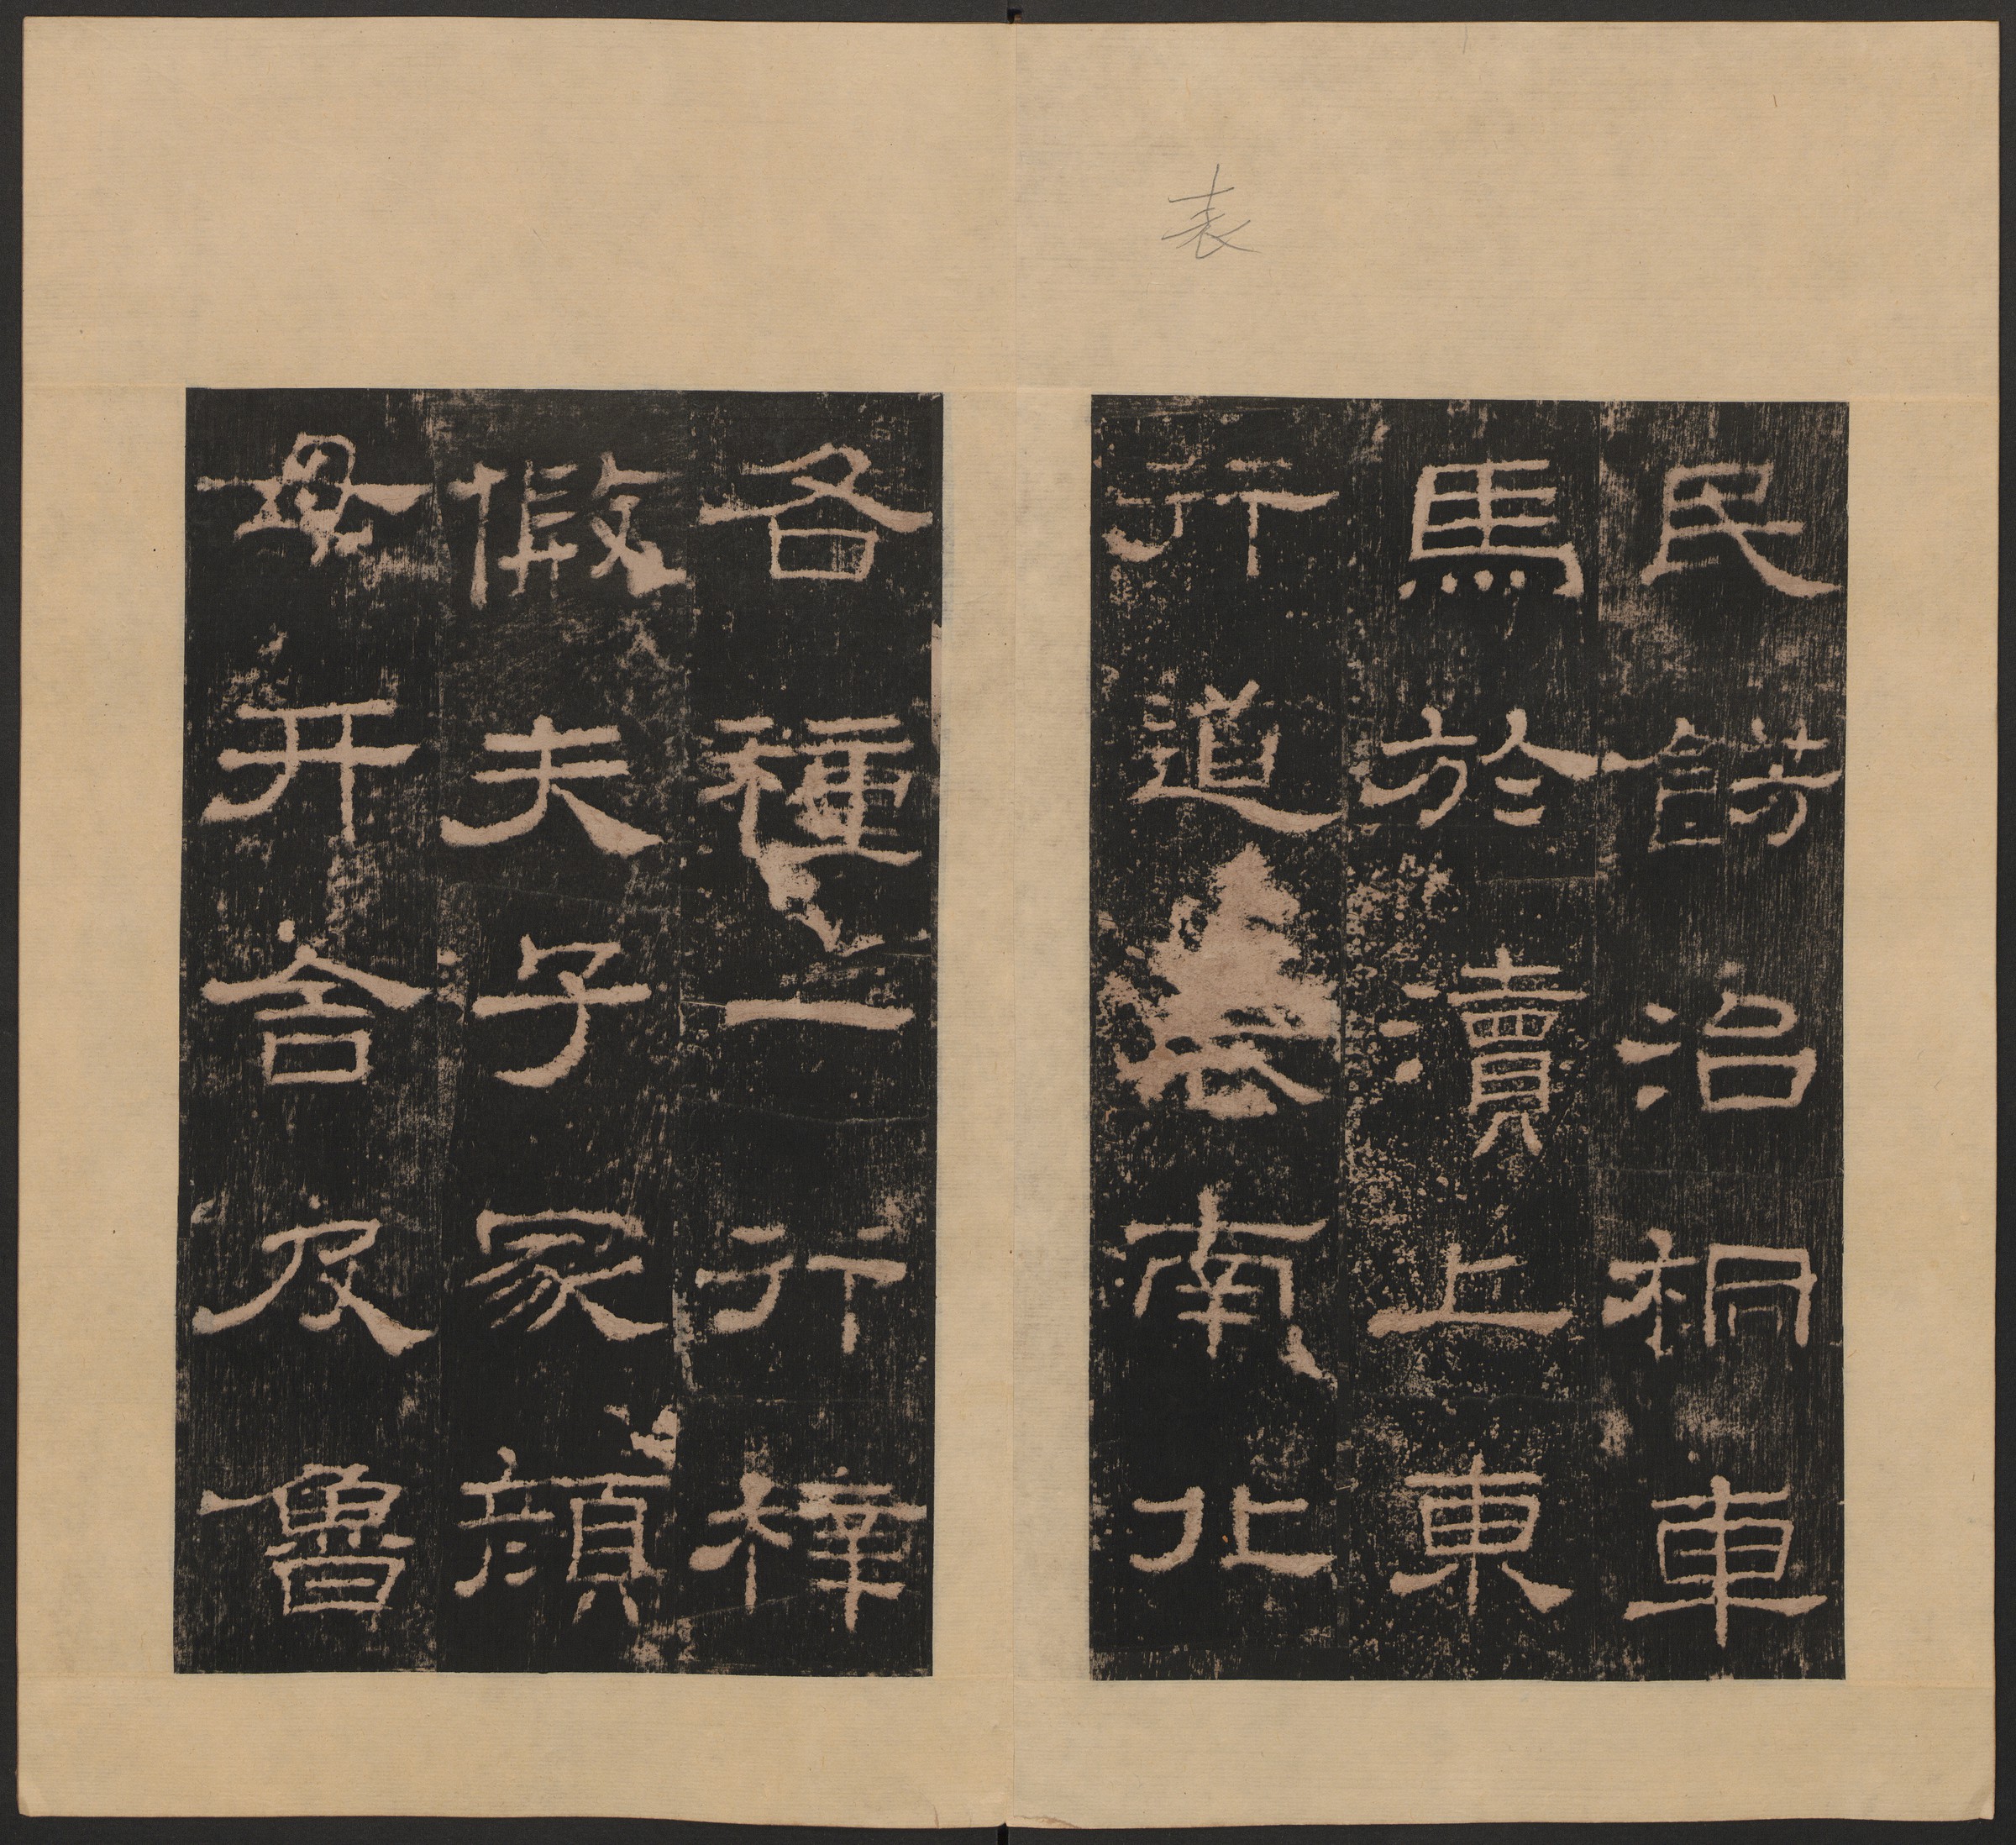 表
民飭治桐車
馬於瀆上東
行道南北
各種一行梓
假夫子冢顏
母井舍及魯